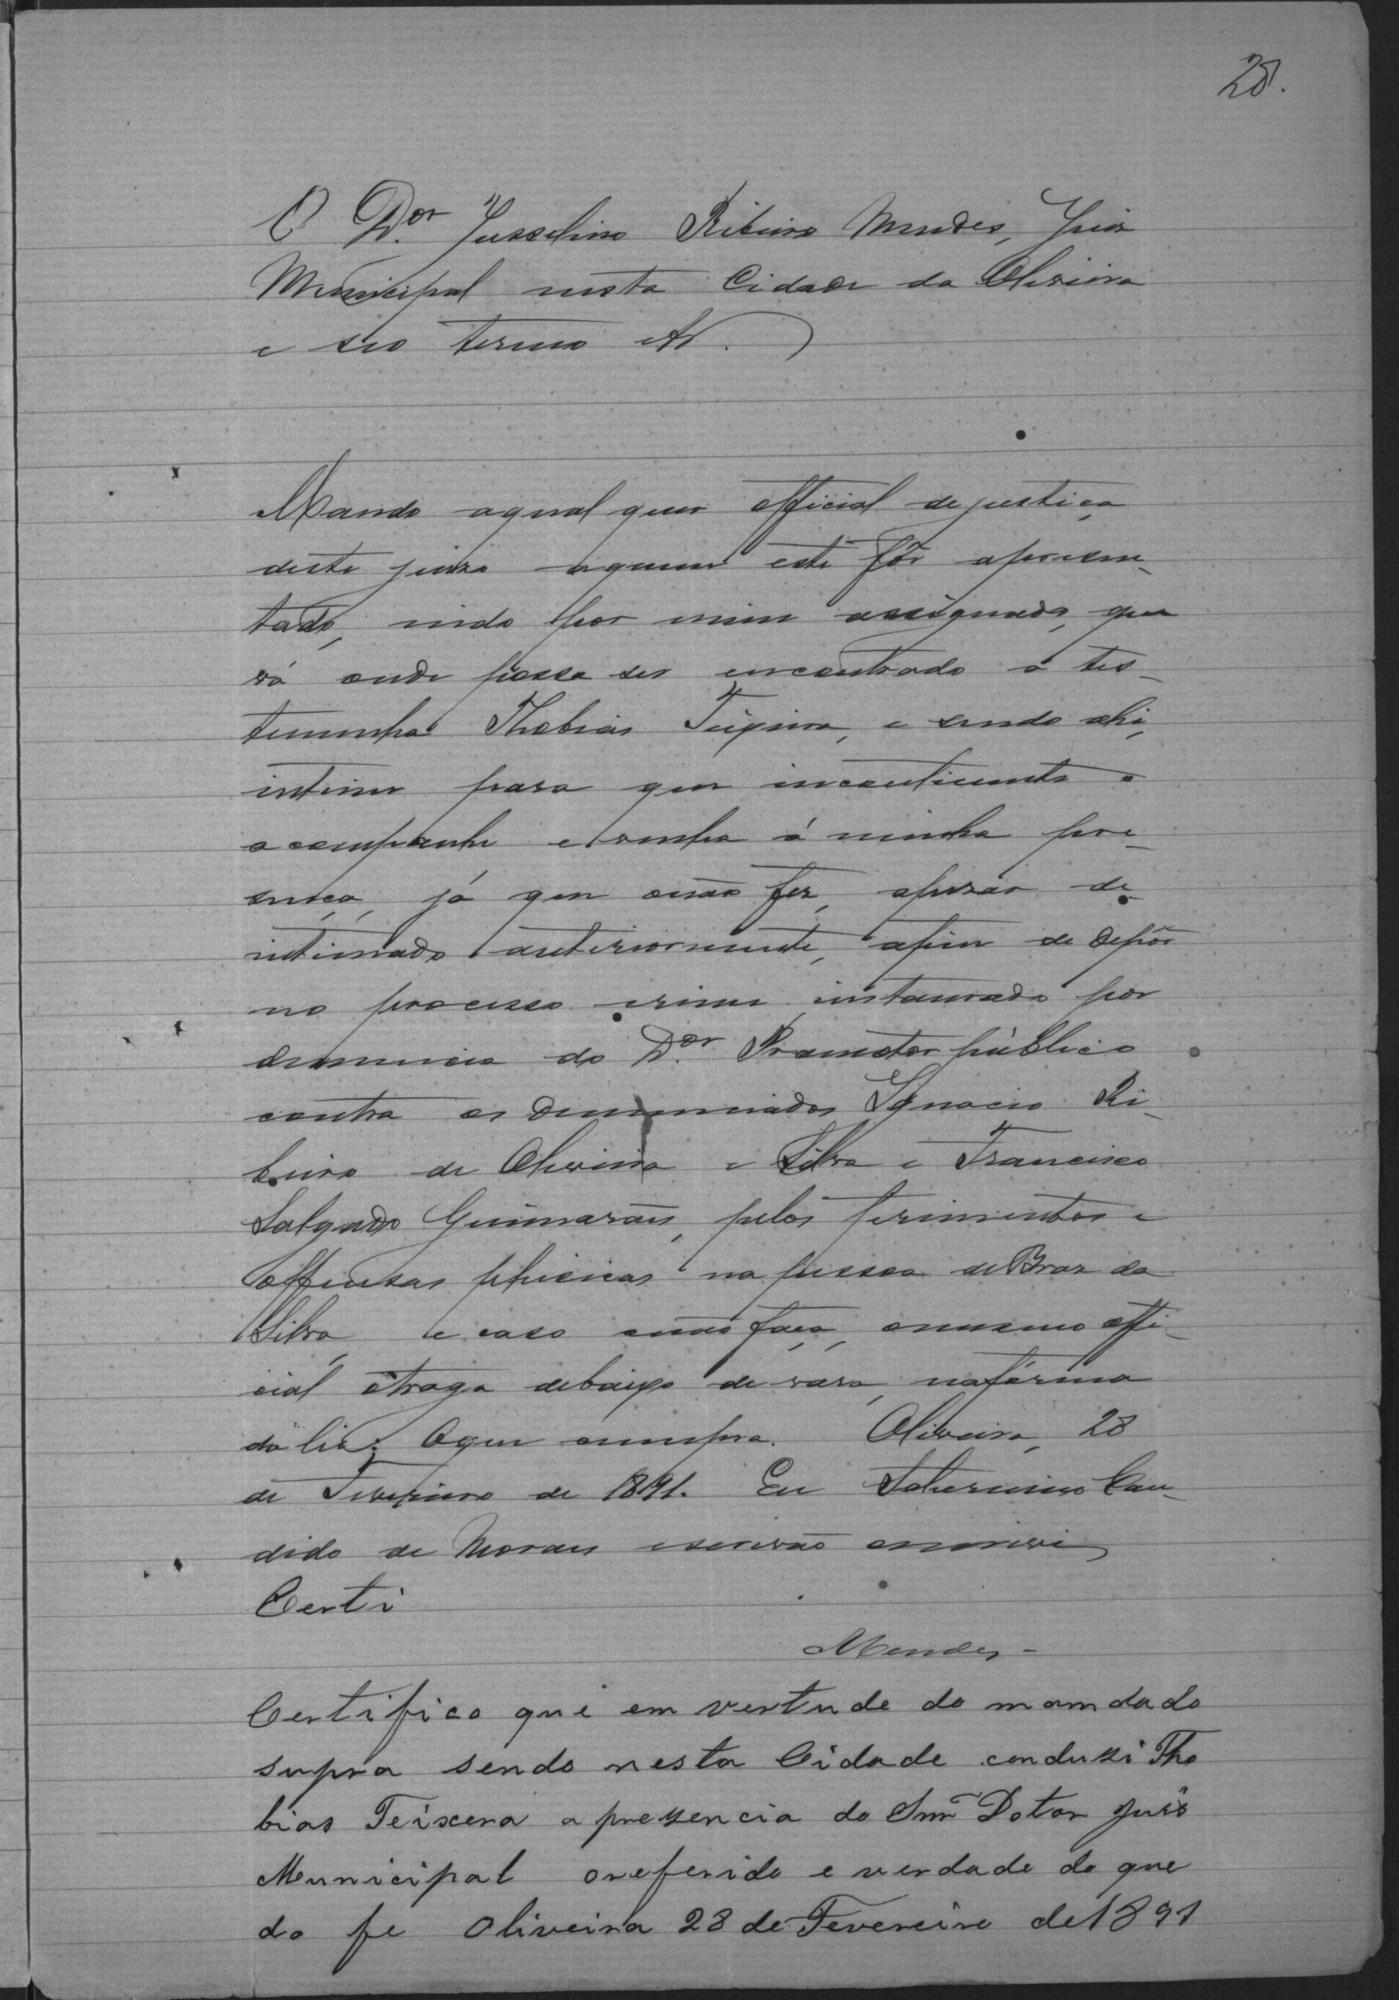 28.
O Dor. Jusselino Ribeiro Mendes, Juiz
Municipal nesta Cidade da Oliveira
e seo termo etc.
Mando aqual quer official dejustiça
deste juizo aquem este fôr apresen-
tado, indo por mim assignado, que
vá onde possa ser encontrado a tes-
temunha Thobias Teixeira, e sendo ahi,
intime para que incontinente o
acompanhe e venha á minha pre-
sença, já que onão fez, apezar de
intimado anteriormente, afim de depôr
no processo crime instaurado por
denuncia do Dor. Promotor público
contra os denunciados Ignacio Ri-
beiro de Oliveira e Silva e Francisco
Salgado Guimarães, pelos ferimentos e
offensas phisicas na pessoa deBraz da
Silva, e caso onão faça, omesmo offi-
cial otraga debaixo de vara, nafórma
da lei. Oque cumpra. Oliveira, 28
de Fevereiro de 1891. Eu Saturnino Can-
dido de Moraes escrivão oescrevi
Certi
Mendes
Certifico que em vertude do mamdado
supra sendo nesta Cidade conduzi Tho
bias Teixera a prezencia do Snr Dotor Juis
Municipal oreferido e verdade do que
do fe Oliveira 28 de Fevereiro de 1891